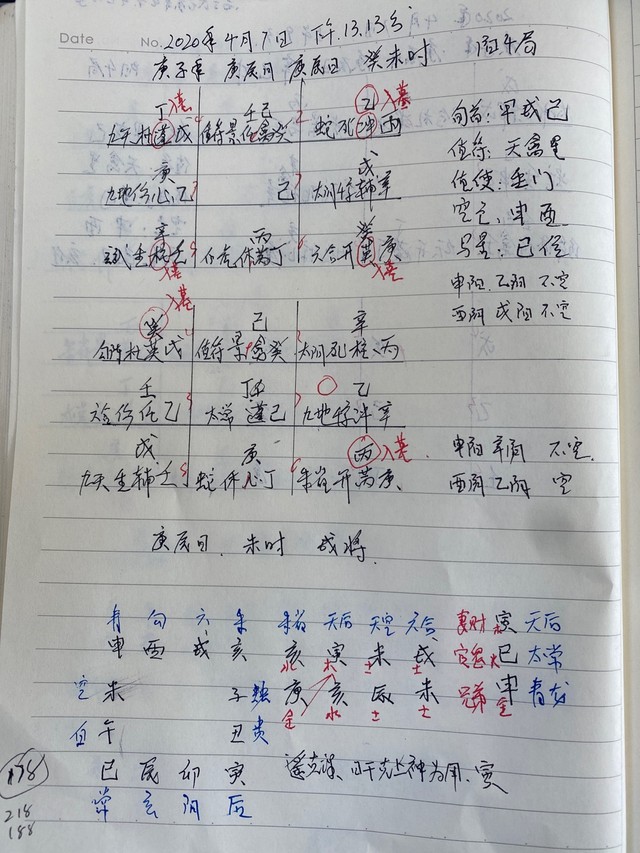 Date
No. 2020年4月7日 下午 13.13分
庚子年 庚辰月 庚辰日 癸未时 阳4局
丁入墓 壬己 乙入墓
九天杜蓬戊 值符景任禽癸 蛇死冲丙
旬首:甲戌己
庚 戊
值符:天禽星
九地伤心乙 己 太阴惊辅辛
值使:生门
空亡:申酉
辛 丙 癸
玄武生柱壬 白虎休芮丁 六合开英庚
马星:巳
入墓 入墓
申阳 乙阴 不空
入墓
酉阴 戌阳 不空
癸 己 辛
勾陈杜英戊 值符景禽癸 太阴死柱丙
壬 丁 乙
六合伤任乙 太常蓬己 九地惊冲辛
戊 庚 丙入墓
申阳 辛阴 不空
九天生辅壬 蛇休心丁 朱雀开芮庚
酉阴 乙阴 空
庚辰日 未时 戌将
青 勾 六 朱 朱雀 天后 天空 六合 妻财 寅 天后
申 酉 戌 亥 亥 寅 未 戌 官鬼 巳 太常
水 木 土 土 火
空 未 子 蛇 庚 亥 辰 未 兄弟 申 青龙
金 水 土 土 金
白 午 丑 贵
巳 辰 卯 寅 遥克课、日干克上神为用、寅
常 玄 阴 后
178
218
188